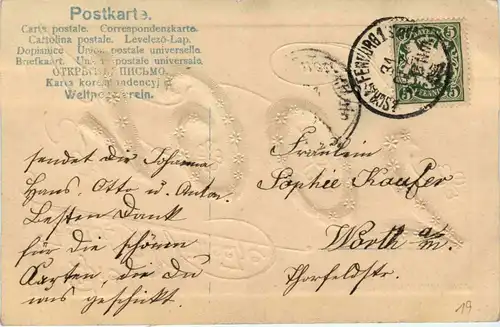 Postkarte.
Carte postale. Correspondenzkarte.
Cartolina postale. Levelező-Lap.
Dopisnice Union postale universelle.
Briefkaart. Union postale universale.
ОТКРЫТОЕ ПИСЬМО.
Karta korespondencyjna
Weltpostverein.
ASCHAFFENBURG 1
31
5 5
PFENNIG
sendet die Johanna
Hans, Otto u. Anton.
Besten Dank
für die schönen
Karten, die Du
uns geschickt.
Fräulein
Sophie Kaufer
Wörth a/M.
19